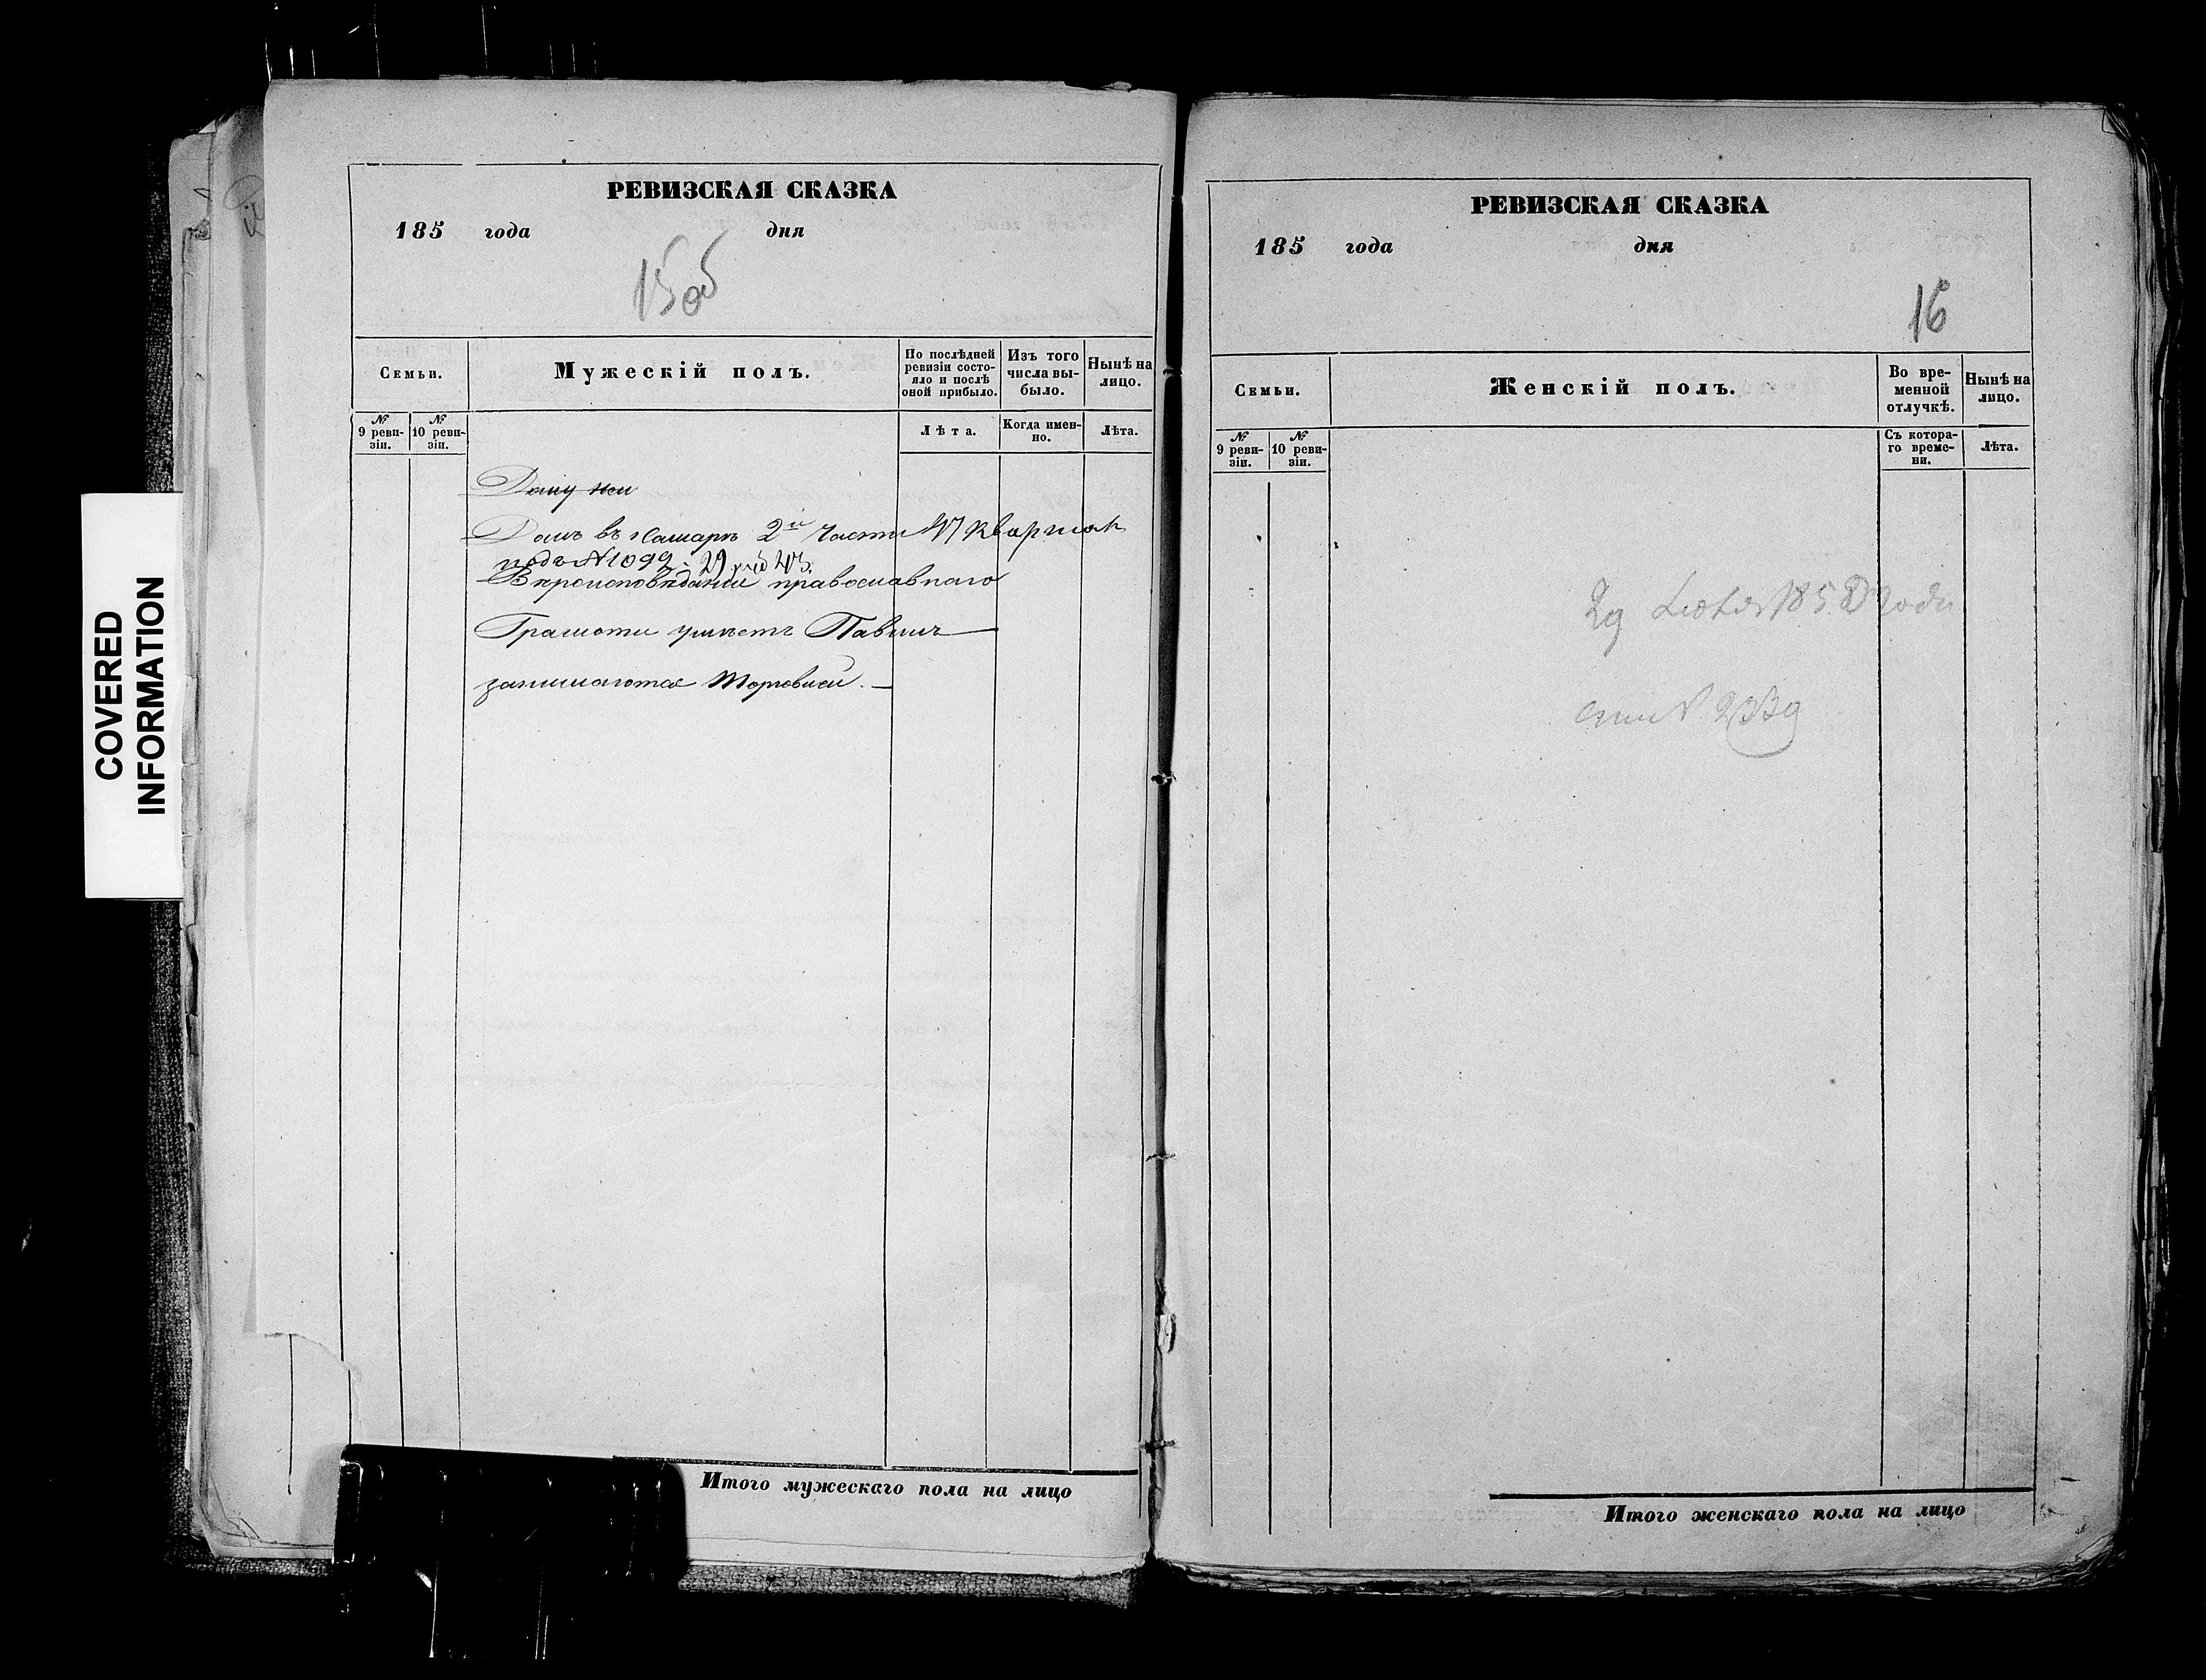 COVERED
INFORMATION
РЕВИЗСКАЯ СКАЗКА
185 года дня
15об
Семьи.
Мужескій полъ.
По послѣдней
ревизіи состо-
яло и послѣ
оной прибыло.
Изъ того
числа вы-
было.
Нынѣ на
лицо.
№
9 реви-
зіи.
№
10 реви-
зіи.
Лѣта.
Когда имен-
но.
Лѣта.
Домъ въ Самарѣ 2й Части
подъ №
православнаго
Грамоти умѣетъ
занимаются
Итого мужескаго пола на лицо
РЕВИЗСКАЯ СКАЗКА
185 года дня
16
Семьи.
Женскій полъ.
Во вре-
менной
отлучкѣ.
Нынѣ на
лицо.
№
9 реви-
зіи.
№
10 реви-
зіи.
Съ котора-
го време-
ни.
Лѣта.
Итого женскаго пола на лицо